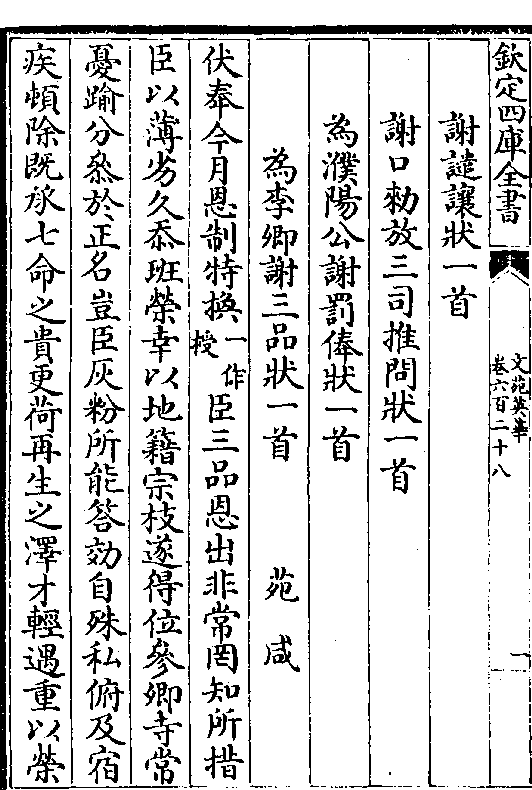 欽定四庫全書
文苑英華
卷六百二十八
一
謝譴讓狀一首
謝口勅放三司推問狀一首
為濮陽公謝罰俸狀一首
為李卿謝三品狀一首 苑咸
伏奉今月恩制特換一作授臣三品恩出非常罔知所措
臣以薄劣久忝班榮幸以地籍宗枝遂得位參卿寺常
憂踰分叅於正名豈臣灰粉所能答効自殊私俯及宿
疾頓除既承七命之貴更荷再生之澤才輕遇重以榮